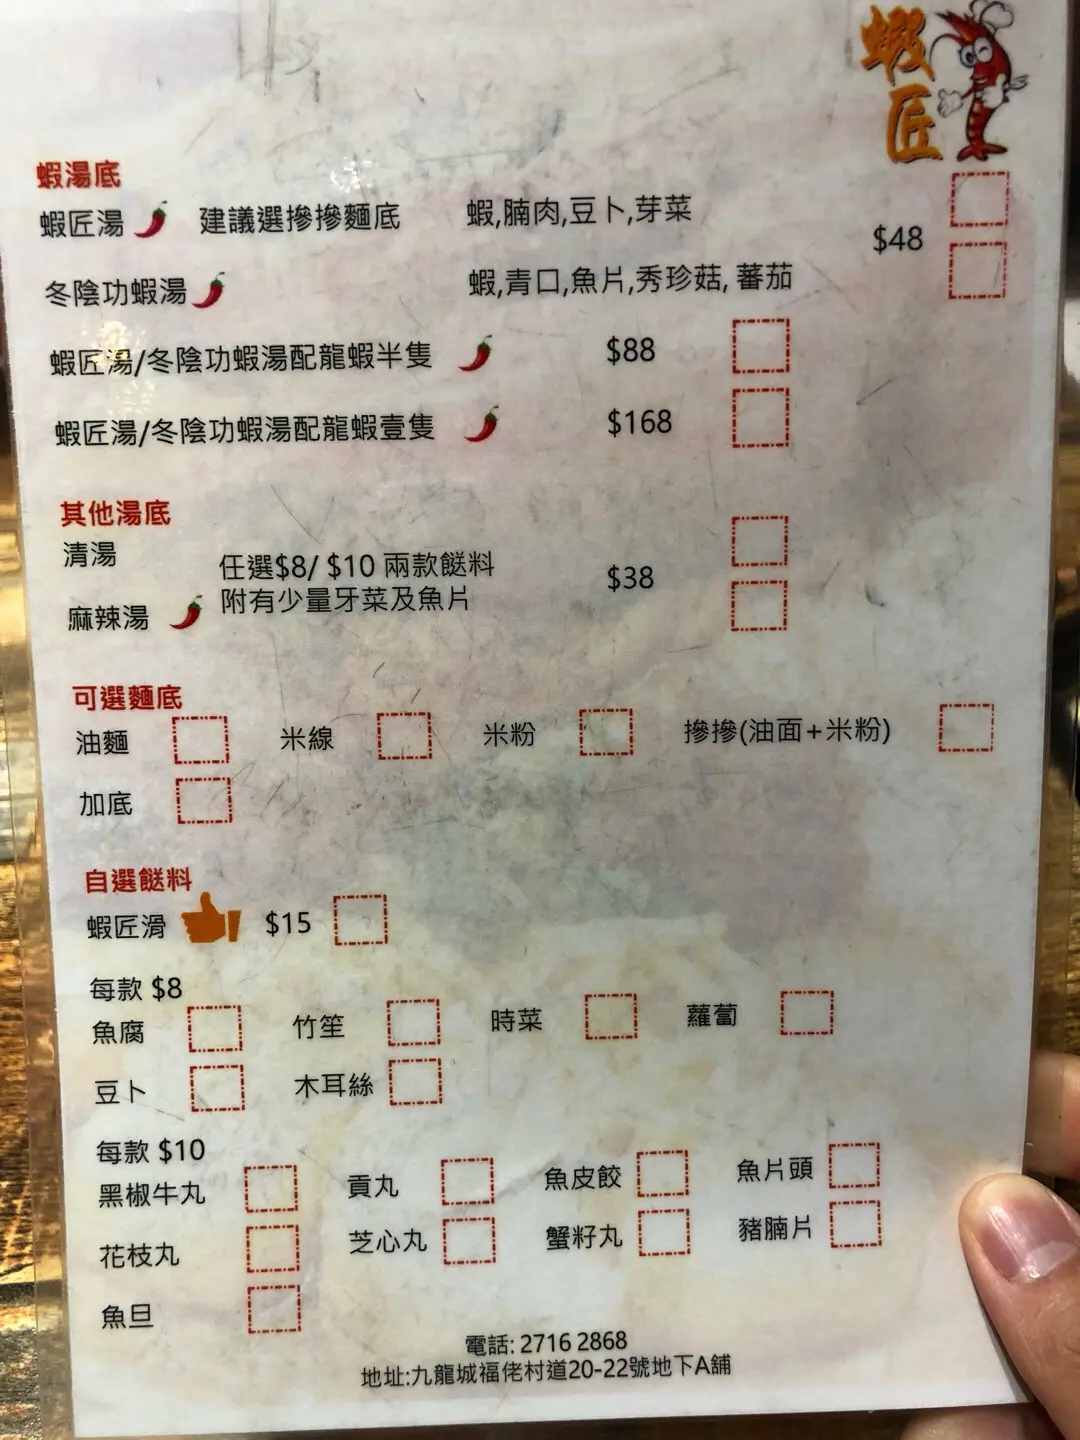 蝦匠
蝦湯底
蝦匠湯 建議選摻摻麵底 蝦,腩肉,豆卜,芽菜
$48
冬陰功蝦湯 蝦,青口,魚片,秀珍菇, 蕃茄
蝦匠湯/冬陰功蝦湯配龍蝦半隻 $88
蝦匠湯/冬陰功蝦湯配龍蝦壹隻 $168
其他湯底
清湯 任選$8/ $10 兩款餸料 $38
麻辣湯 附有少量牙菜及魚片
可選麵底
油麵 米線 米粉 摻摻(油面+米粉)
加底
自選餸料
蝦匠滑 $15
每款 $8
魚腐 竹笙 時菜 蘿蔔
豆卜 木耳絲
每款 $10
黑椒牛丸 貢丸 魚皮餃 魚片頭
花枝丸 芝心丸 蟹籽丸 豬腩片
魚旦
電話: 2716 2868
地址:九龍城福佬村道20-22號地下A舖